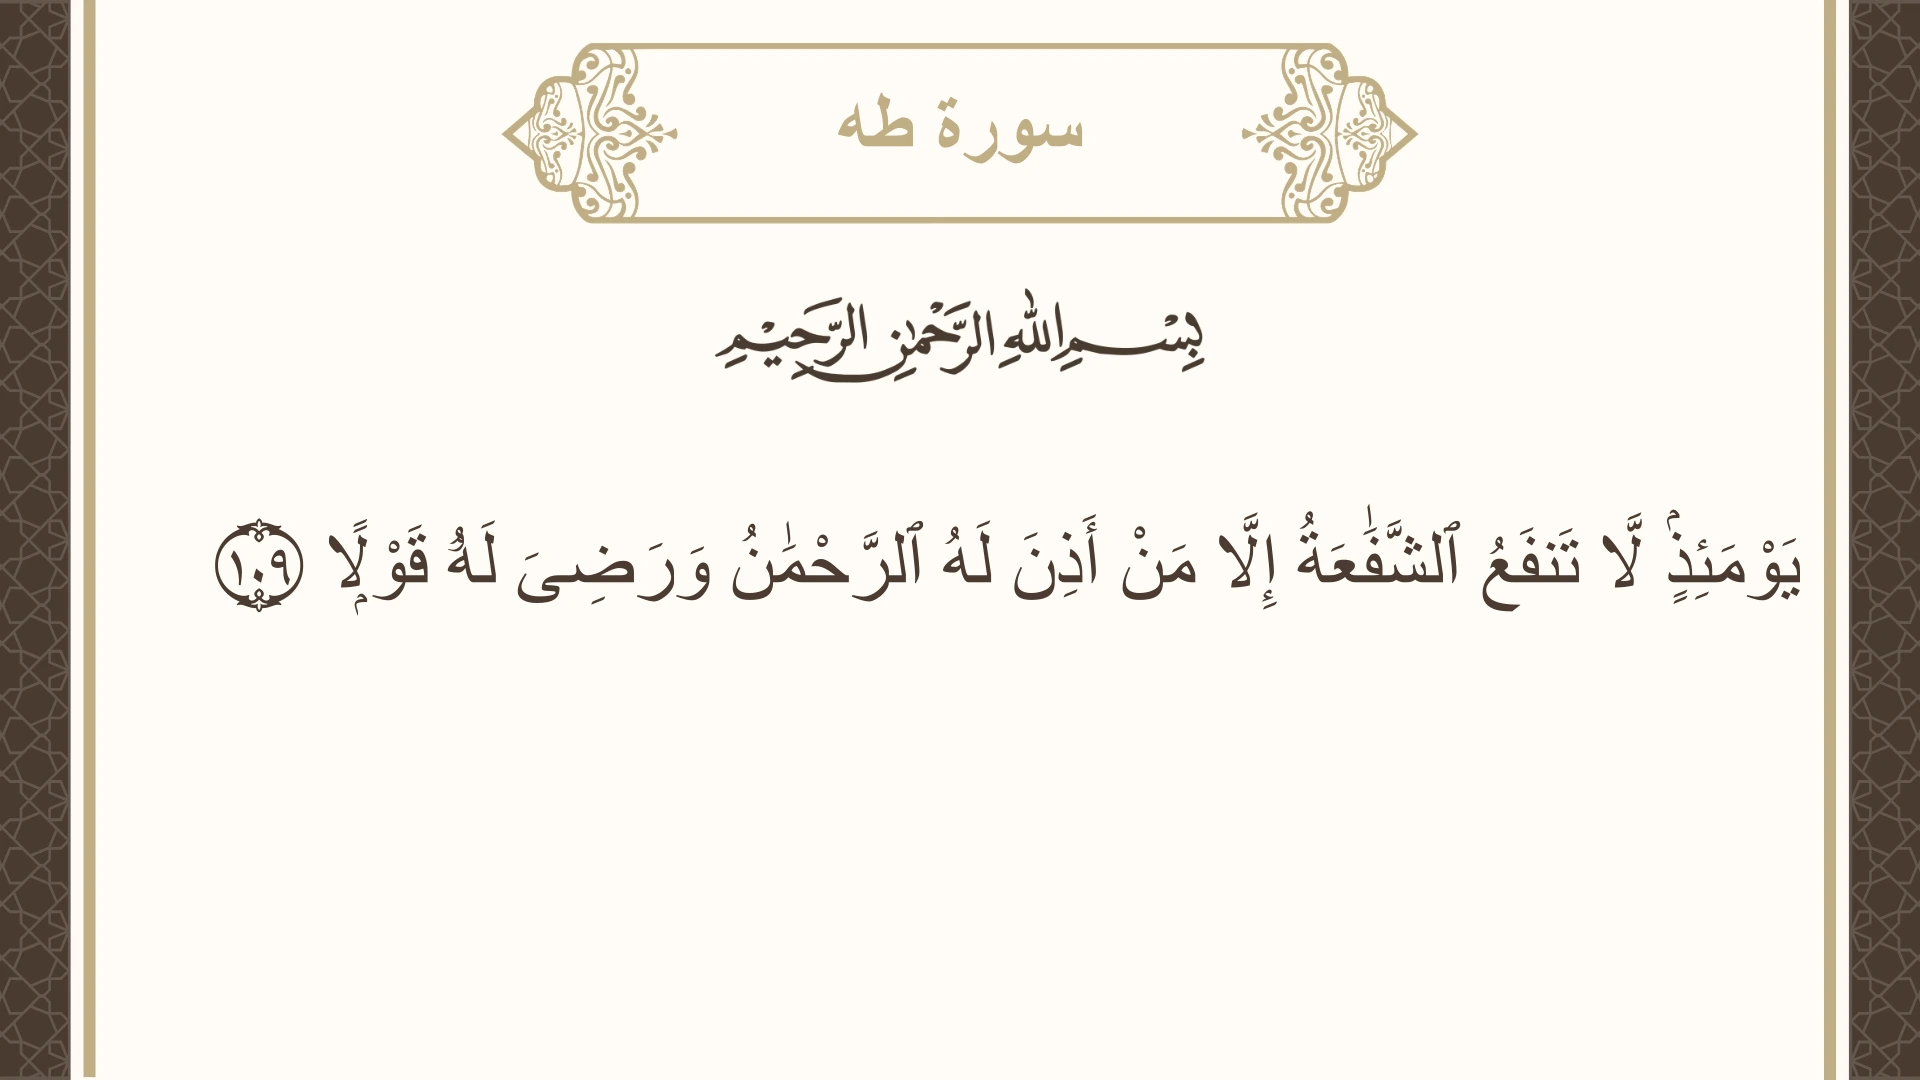 سورة طه
بِسْمِ اللهِ الرَّحْمٰنِ الرَّحِيْمِ
يَوْمَئِذٍۢ لَّا تَنفَعُ ٱلشَّفَـٰعَةُ إِلَّا مَنْ أَذِنَ لَهُ ٱلرَّحْمَـٰنُ وَرَضِىَ لَهُۥ قَوْلًۭا ١٠٩